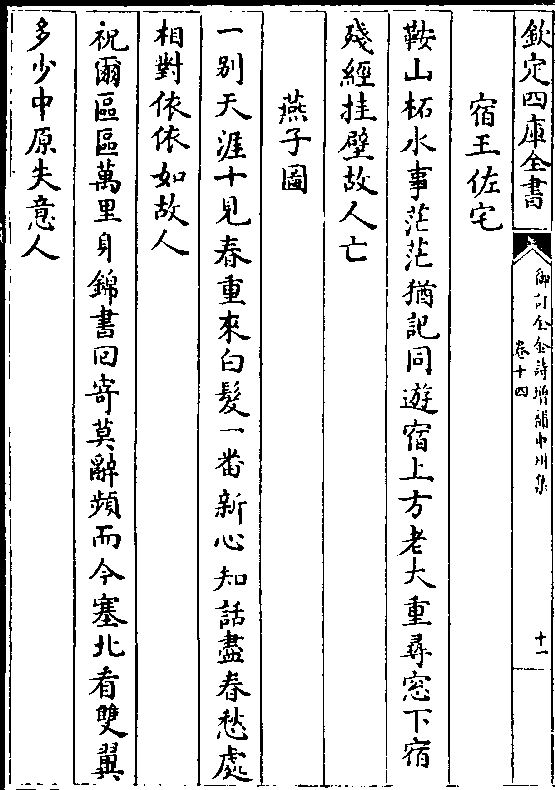 欽定四庫全書
御訂全金詩增補中州集
卷十四
十一
宿王佐宅
鞍山柘水事茫茫猶記同遊宿上方老大重尋窓下宿
殘經挂壁故人亡
燕子圖
一别天涯十見春重來白髪一番新心知話盡春愁處
相對依依如故人
祝爾區區萬里身錦書回寄莫辭頻而今塞北看雙翼
多少中原失意人